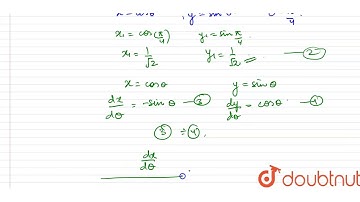 x = cosθ , y = sinθ
x₁ = cos(π/4) y₁ = sin π/4
x₁ = 1/√2 y₁ = 1/√2 — ②
x = cosθ y = sinθ
dx/dθ = -sinθ — ③ dy/dθ = cosθ — ④
③ ÷ ④,
dx/dθ
doubtnut